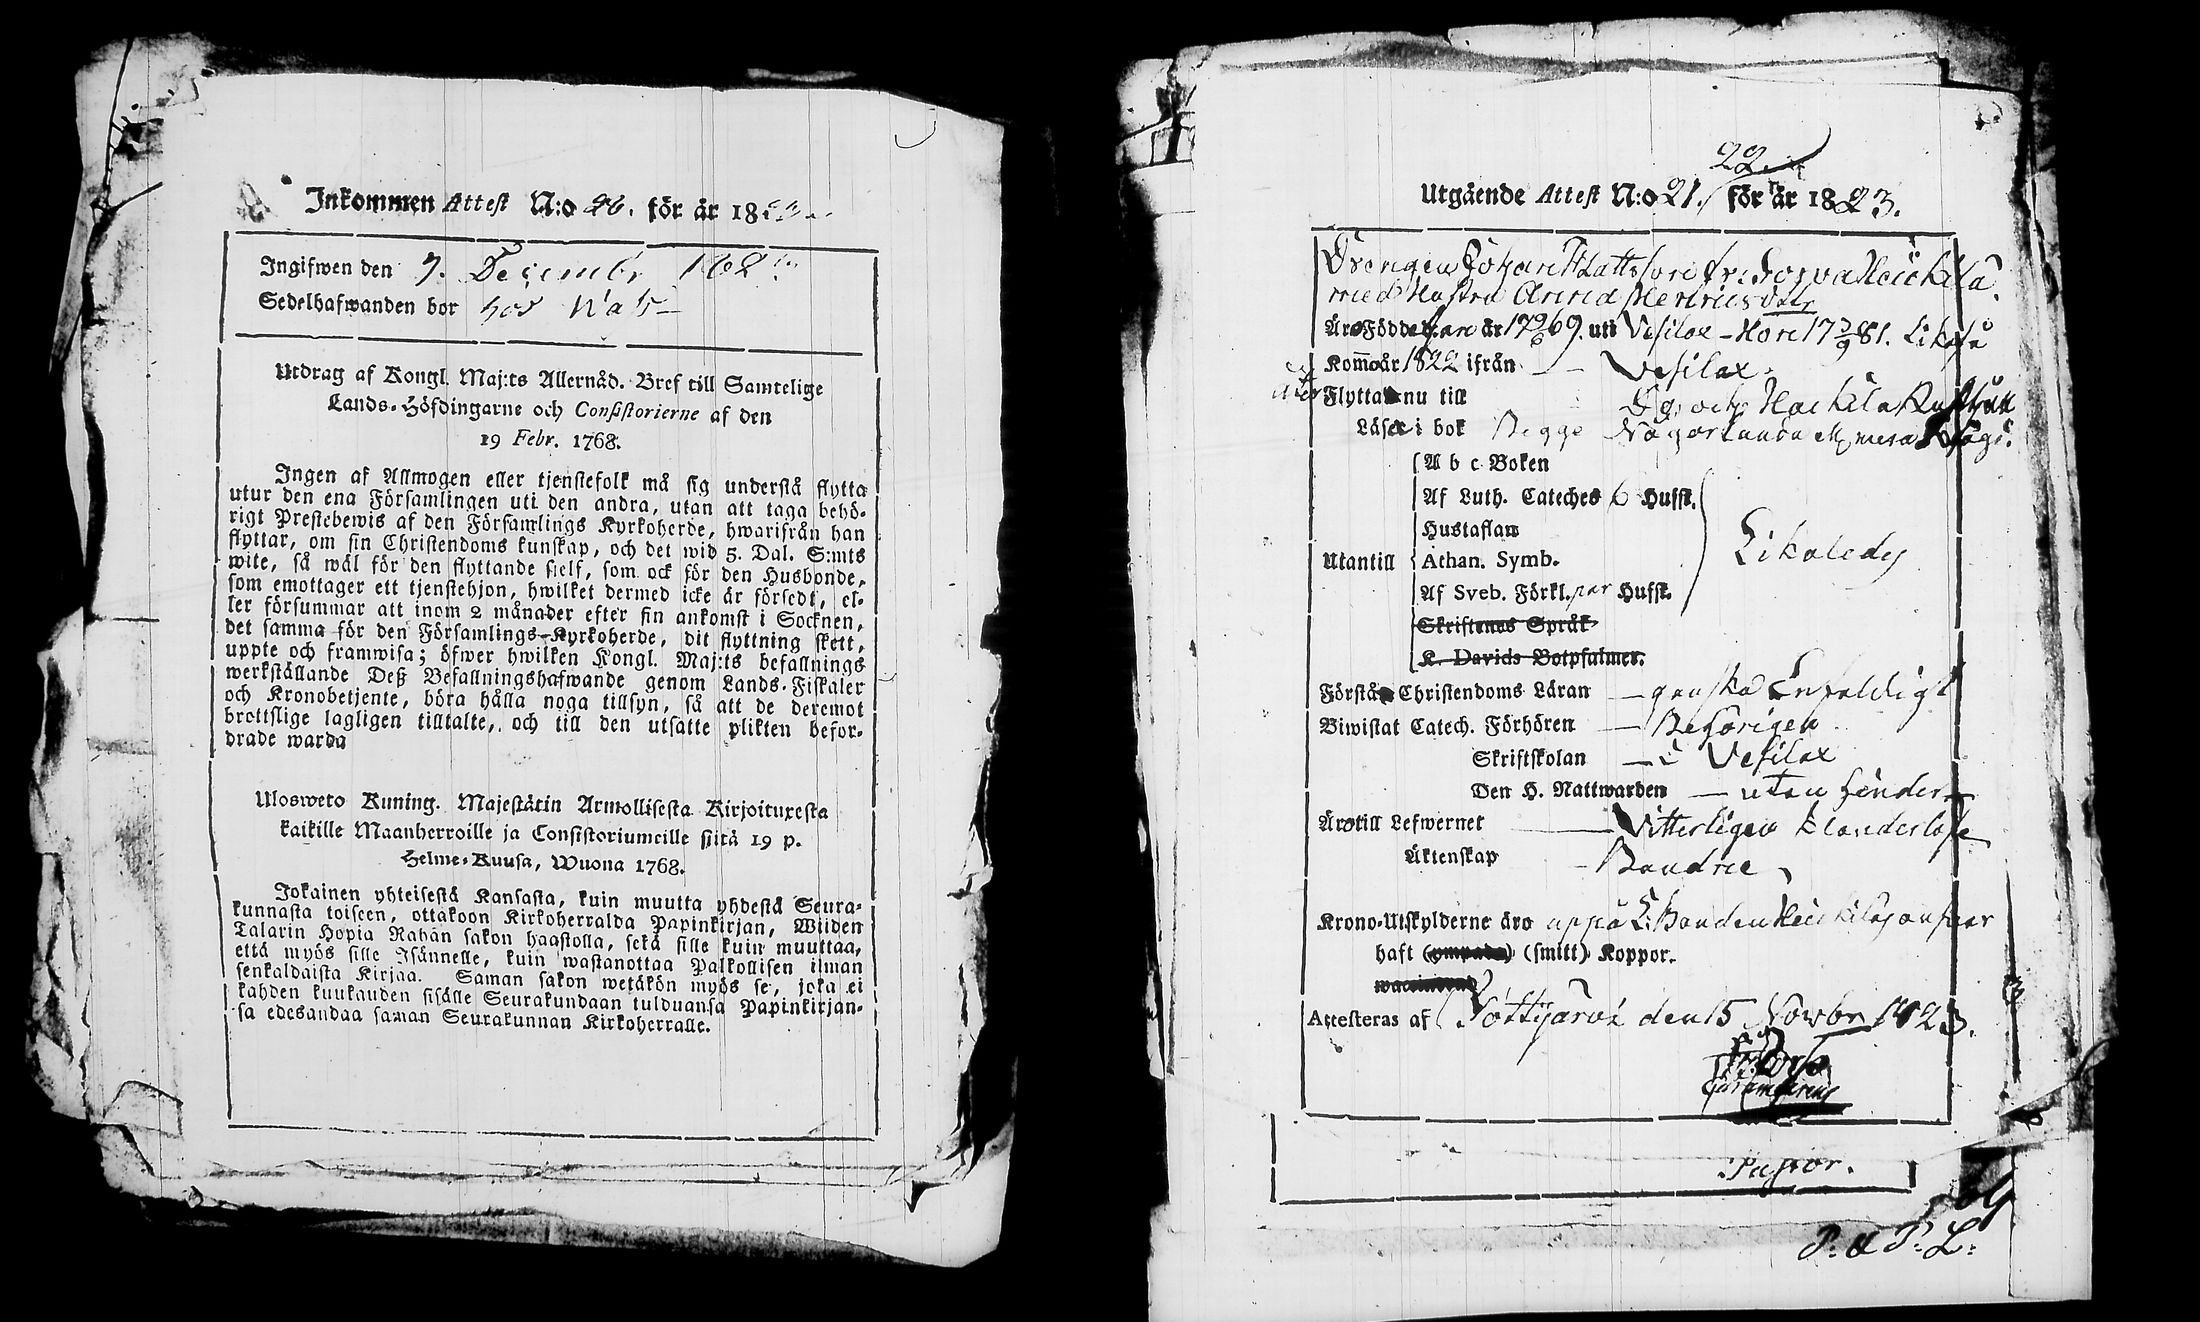 Inkommen Attest N:o 26. för år 18
Ingifwen den 7. Decembr 182
Sedelhafwanden bor hos
Utdrag af Kongl. Maj:ts Allernåd. Bref till Samtelige
Lands-Höfdingarne och Consistorierne af den
19 Febr. 1768.
Ingen af Allmogen eller tjenstefolk må sig understå flytta
utur den ena Församlingen uti den andra, utan att taga behö-
rigt Prestebewis af den Församlings Kyrkoherde, hwarifrån han
flyttar, om sin Christendoms kunskap, och det wid 5. Dal. S:mts
wite, så wäl för den flyttande sielf, som ock för den Husbonde,
som emottager ett tjenstehjon, hwilket dermed icke är försedt, el-
ler försummar att inom 2 månader efter sin ankomst i Socknen,
det samma för den Församlings-Kyrkoherde, dit flyttning skett,
uppte och framwisa; öfwer hwilken Kongl. Maj:ts befallnings
werkställande Deß Befallningshafwande genom Lands-Fiskaler
och Kronobetjente, böra hålla noga tillsyn, så att de deremot
brottslige lagligen tilltalte, och till den utsatte plikten befor-
drade warda
Ulosweto Kuning. Majestätin Armollisesta Kirjoituxesta
kaikille Maanherroille ja Consistoriumeille siitä 19 p.
Helme-Kuusa, Wuona 1768.
Jokainen yhteisestä Kansasta, kuin muutta yhdestä Seura-
kunnasta toiseen, ottakoon Kirkoherralda Papinkirjan, Wiiden
Talarin Hopia Rahan sakon haastolla, sekä sille kuin muuttaa,
että myös sille Isännelle, kuin wastanottaa Palkollisen ilman
senkaldaista Kirjaa. Saman sakon wetäkön myös se, joka ei
kahden kuukauden sisälle Seurakundaan tulduansa Papinkirjan-
sa edesandaa saman Seurakunnan Kirkoherralle.
22.
Utgående Attest N:o 21. för år 1823.
Drengen Johan Mattsson fr.
med Hustru Anna Henricsdottr
Äro Födde han år 17 69. uti Vesilax - Hon 17 81. Likaså
Kommo år 1822 ifrån — Vesilax.
Flytta nu till
Läsa i bok Begge Någorlunda
A b c Boken
Af Luth. Cateches 6 Hufst.
Hustaflan
Utantill Athan. Symb. Likaledes
Af Sveb. Förkl. par Hufst.
Skriftenes Språk
K. Davids Botpsalmer.
Förstå Christendoms Läran — ganska Enfaldigt
Biwistat Catech. Förhören — Behörigen
Skriftskolan — i Vesilax
Den H. Nattwarden — utan hinder
Äro till Lefwernet — Vitterligen klanderlöse
Äktenskap - Bundne
Krono-Utskylderne äro uppå Bonden ansvar
haft (smitt) Koppor.
Attesteras af Töttijärvi den 15 Novbr 1823.
Pastor.
P: U P: L: